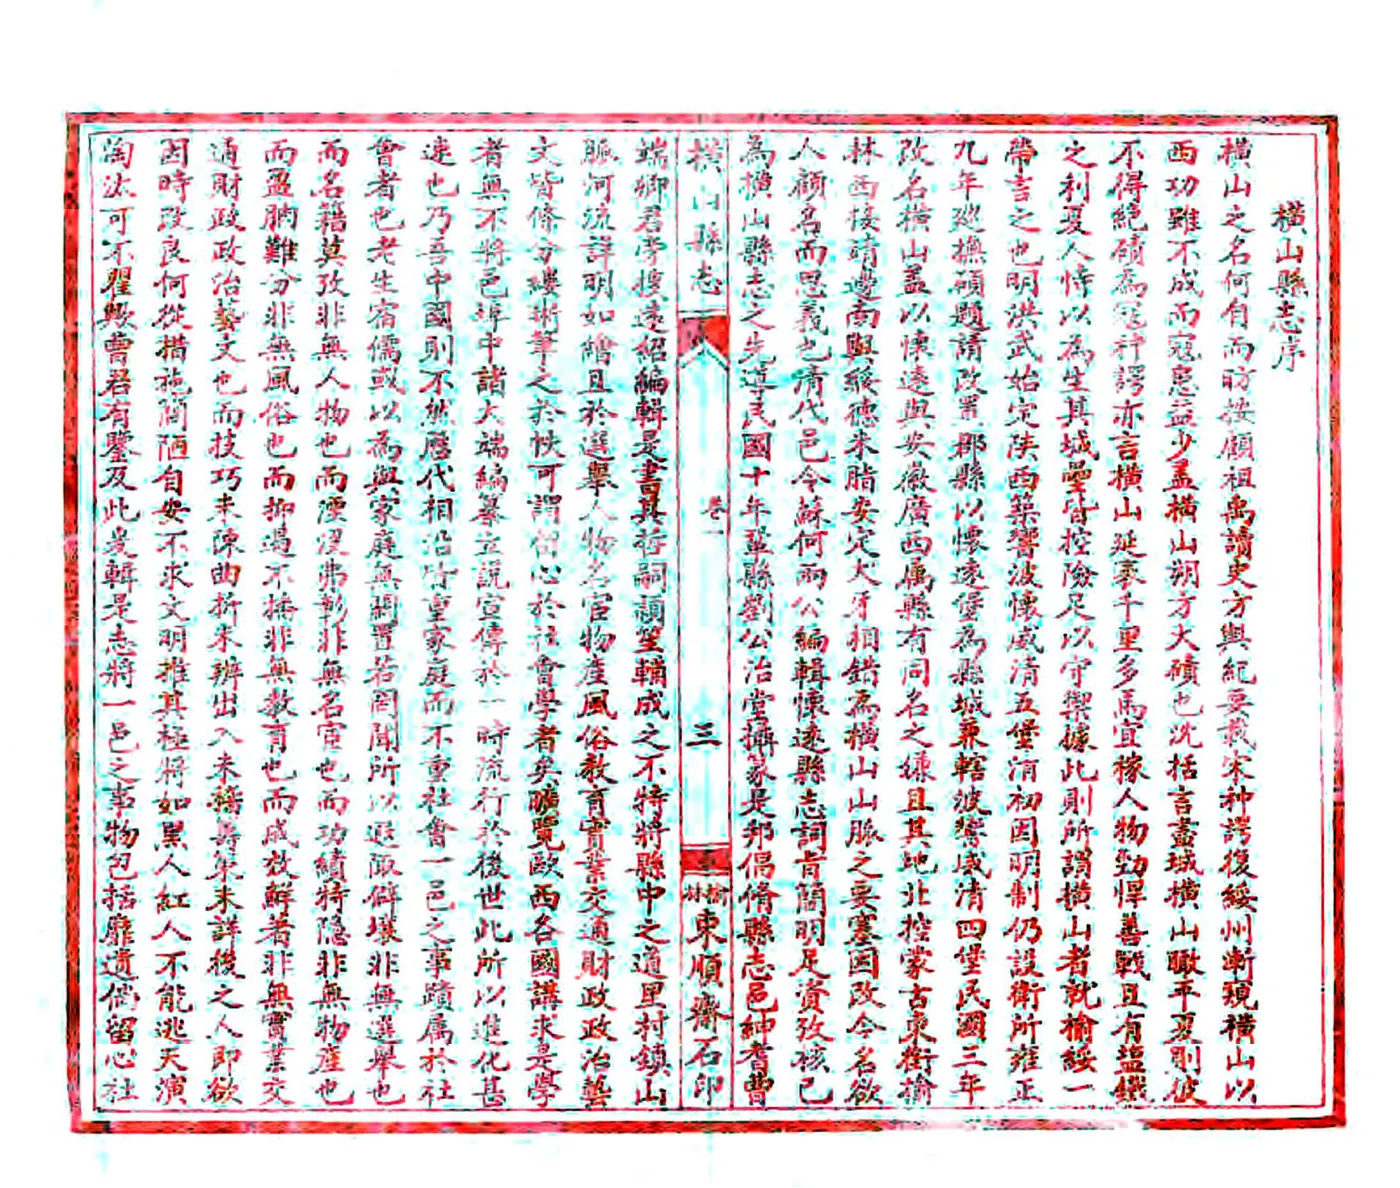 橫山縣志序
橫山之名何自而昉按顧祖禹讀史方輿紀要載宋种諤復綏州漸規橫山以
西功雖不成而寇患益少蓋橫山朔方大磧也沈括言盡城橫山瞰平夏則彼
不得絕磧為寇种諤亦言橫山延袤千里多馬宜稼人物勁悍善戰且有鹽鐵
之利夏人恃以為生其城壘皆控險足以守禦據此則所謂橫山者就榆綏一
帶言之也明洪武始定陝西築響波懷威清五堡清初因明制仍設衛所雍正
九年巡撫碩題請改置郡縣以懷遠堡為縣城兼轄波響威清四堡民國三年
改名橫山蓋以懷遠與安徽廣西屬縣有同名之嫌且其地北控蒙古東衛榆
林西接靖邊南與綏德米脂安定犬牙相錯為橫山山脈之要塞因改今名欲
人顧名而思義也清代邑令蘇何兩公編輯懷遠縣志詞旨簡明足資攷核已
為橫山縣志之先導民國十年鞏縣劉公治堂攝篆是邦倡脩縣志邑紳耆曹
橫山縣志
卷一
三
榆林東順齋石印
端卿君旁搜遠紹編輯是書其哲嗣穎笙輔成之不特將縣中之道里村鎮山
脈河流詳明如繪且於選舉人物名宦物產風俗教育實業交通財政政治藝
文皆條分縷晰筆之於帙可謂留心於社會學者矣曠覽歐西各國講求是學
者無不將邑乘中諸大端編纂立說宣傳於一時流行於後世此所以進化甚
速也乃吾中國則不然歷代相沿皆重家庭而不重社會一邑之事蹟屬於社
會者也老生宿儒或以為與家庭無關置若罔聞所以遐陬僻壤非無選舉也
而名籍莫攷非無人物也而湮沒弗彰非無名宦也而功績特隱非無物產也
而盈朒難分非無風俗也而抑遏不揚非無教育也而成效鮮著非無實業交
通財政政治藝文也而技巧未陳曲折未辨出入未籍壽棗未詳後之人即欲
因時改良何從措施簡陋自安不求文明推其極將如黑人紅人不能逃天演
淘汰可不瞿歟曹君有鑒及此爰輯是志將一邑之事物包括靡遺倘留心社